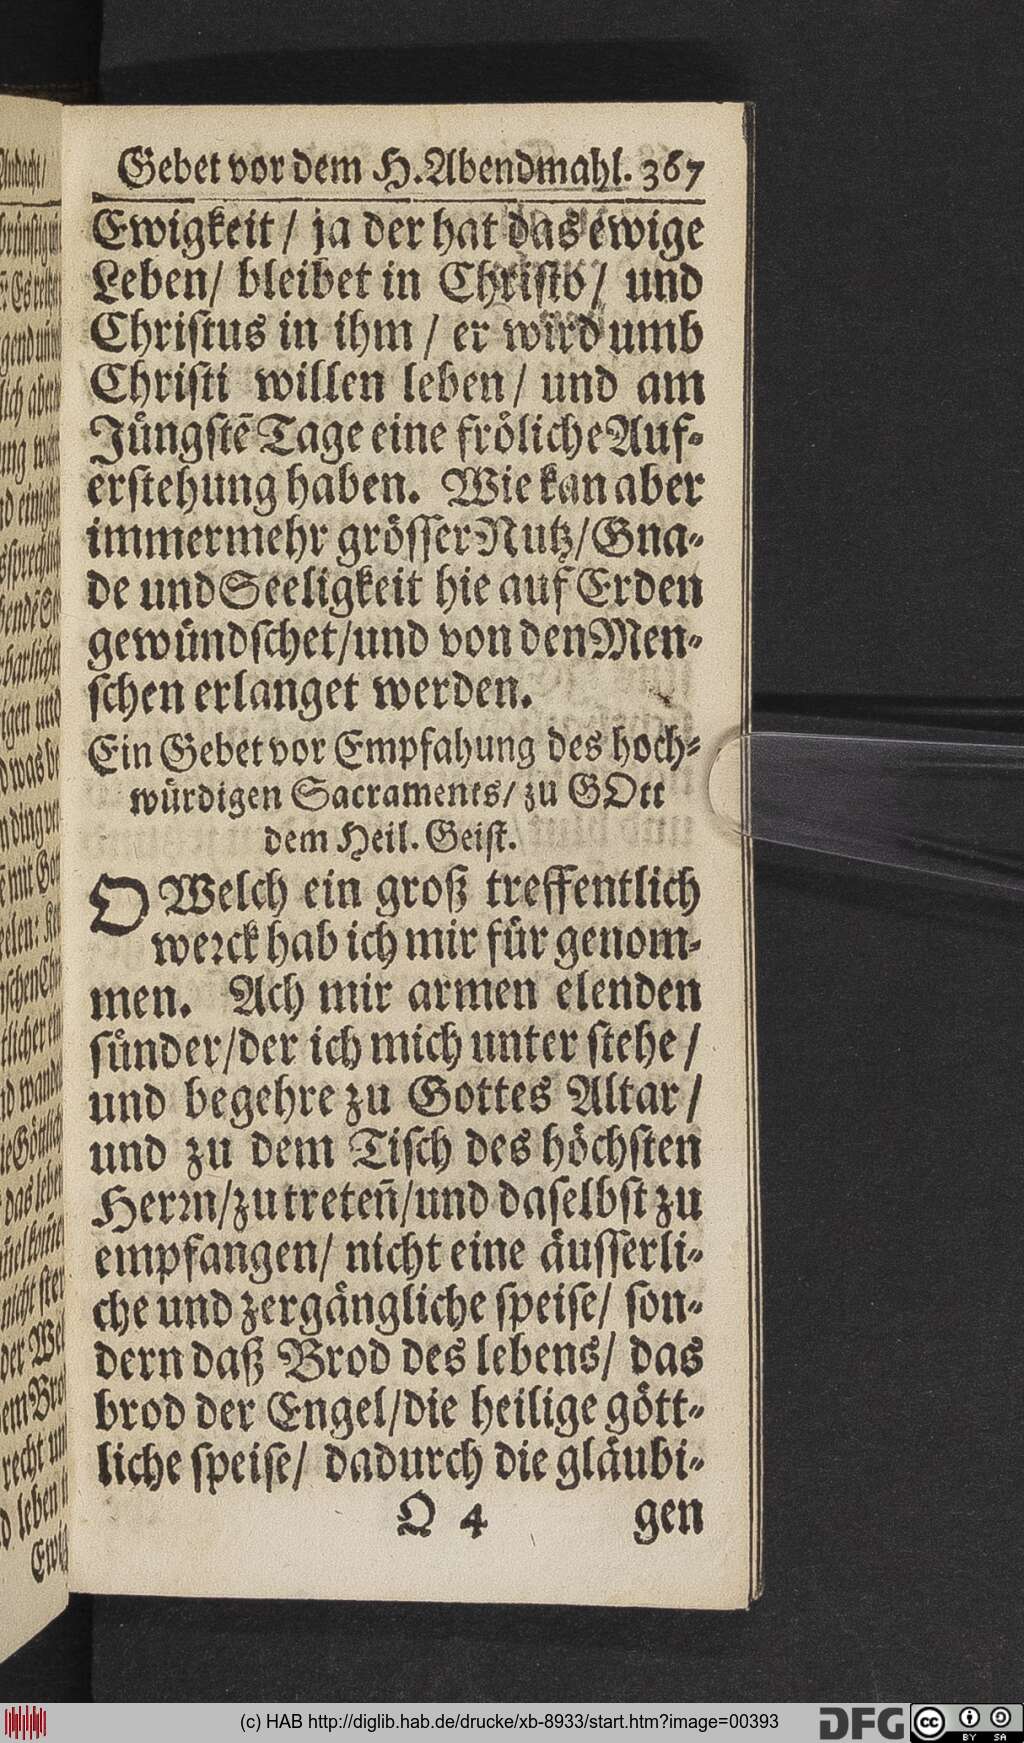 Gebet vor dem H. Abendmahl. 367
Ewigkeit / ja der hat das ewige
Leben / bleibet in Christo / und
Christus in ihm / er wird umb
Christi willen leben / und am
Jüngstẽ Tage eine fröliche Auf-
erstehung haben. Wie kan aber
immermehr grösser Nutz / Gna-
de und Seeligkeit hie auf Erden
gewündschet / und von den Men-
schen erlanget werden.
Ein Gebet vor Empfahung des hoch-
würdigen Sacraments / zu GOtt
dem Heil. Geist.
O Welch ein groß treffentlich
werck hab ich mir für genom-
men. Ach mir armen elenden
sünder / der ich mich unter stehe /
und begehre zu Gottes Altar /
und zu dem Tisch des höchsten
Herrn / zu treten̄ / und daselbst zu
empfangen / nicht eine äusserli-
che und zergängliche speise / son-
dern daß Brod des lebens / das
brod der Engel / die heilige gött-
liche speise / dadurch die gläubi-
Q 4 gen
(c) HAB http://diglib.hab.de/drucke/xb-8933/start.htm?image=00393
DFG
cc BY SA